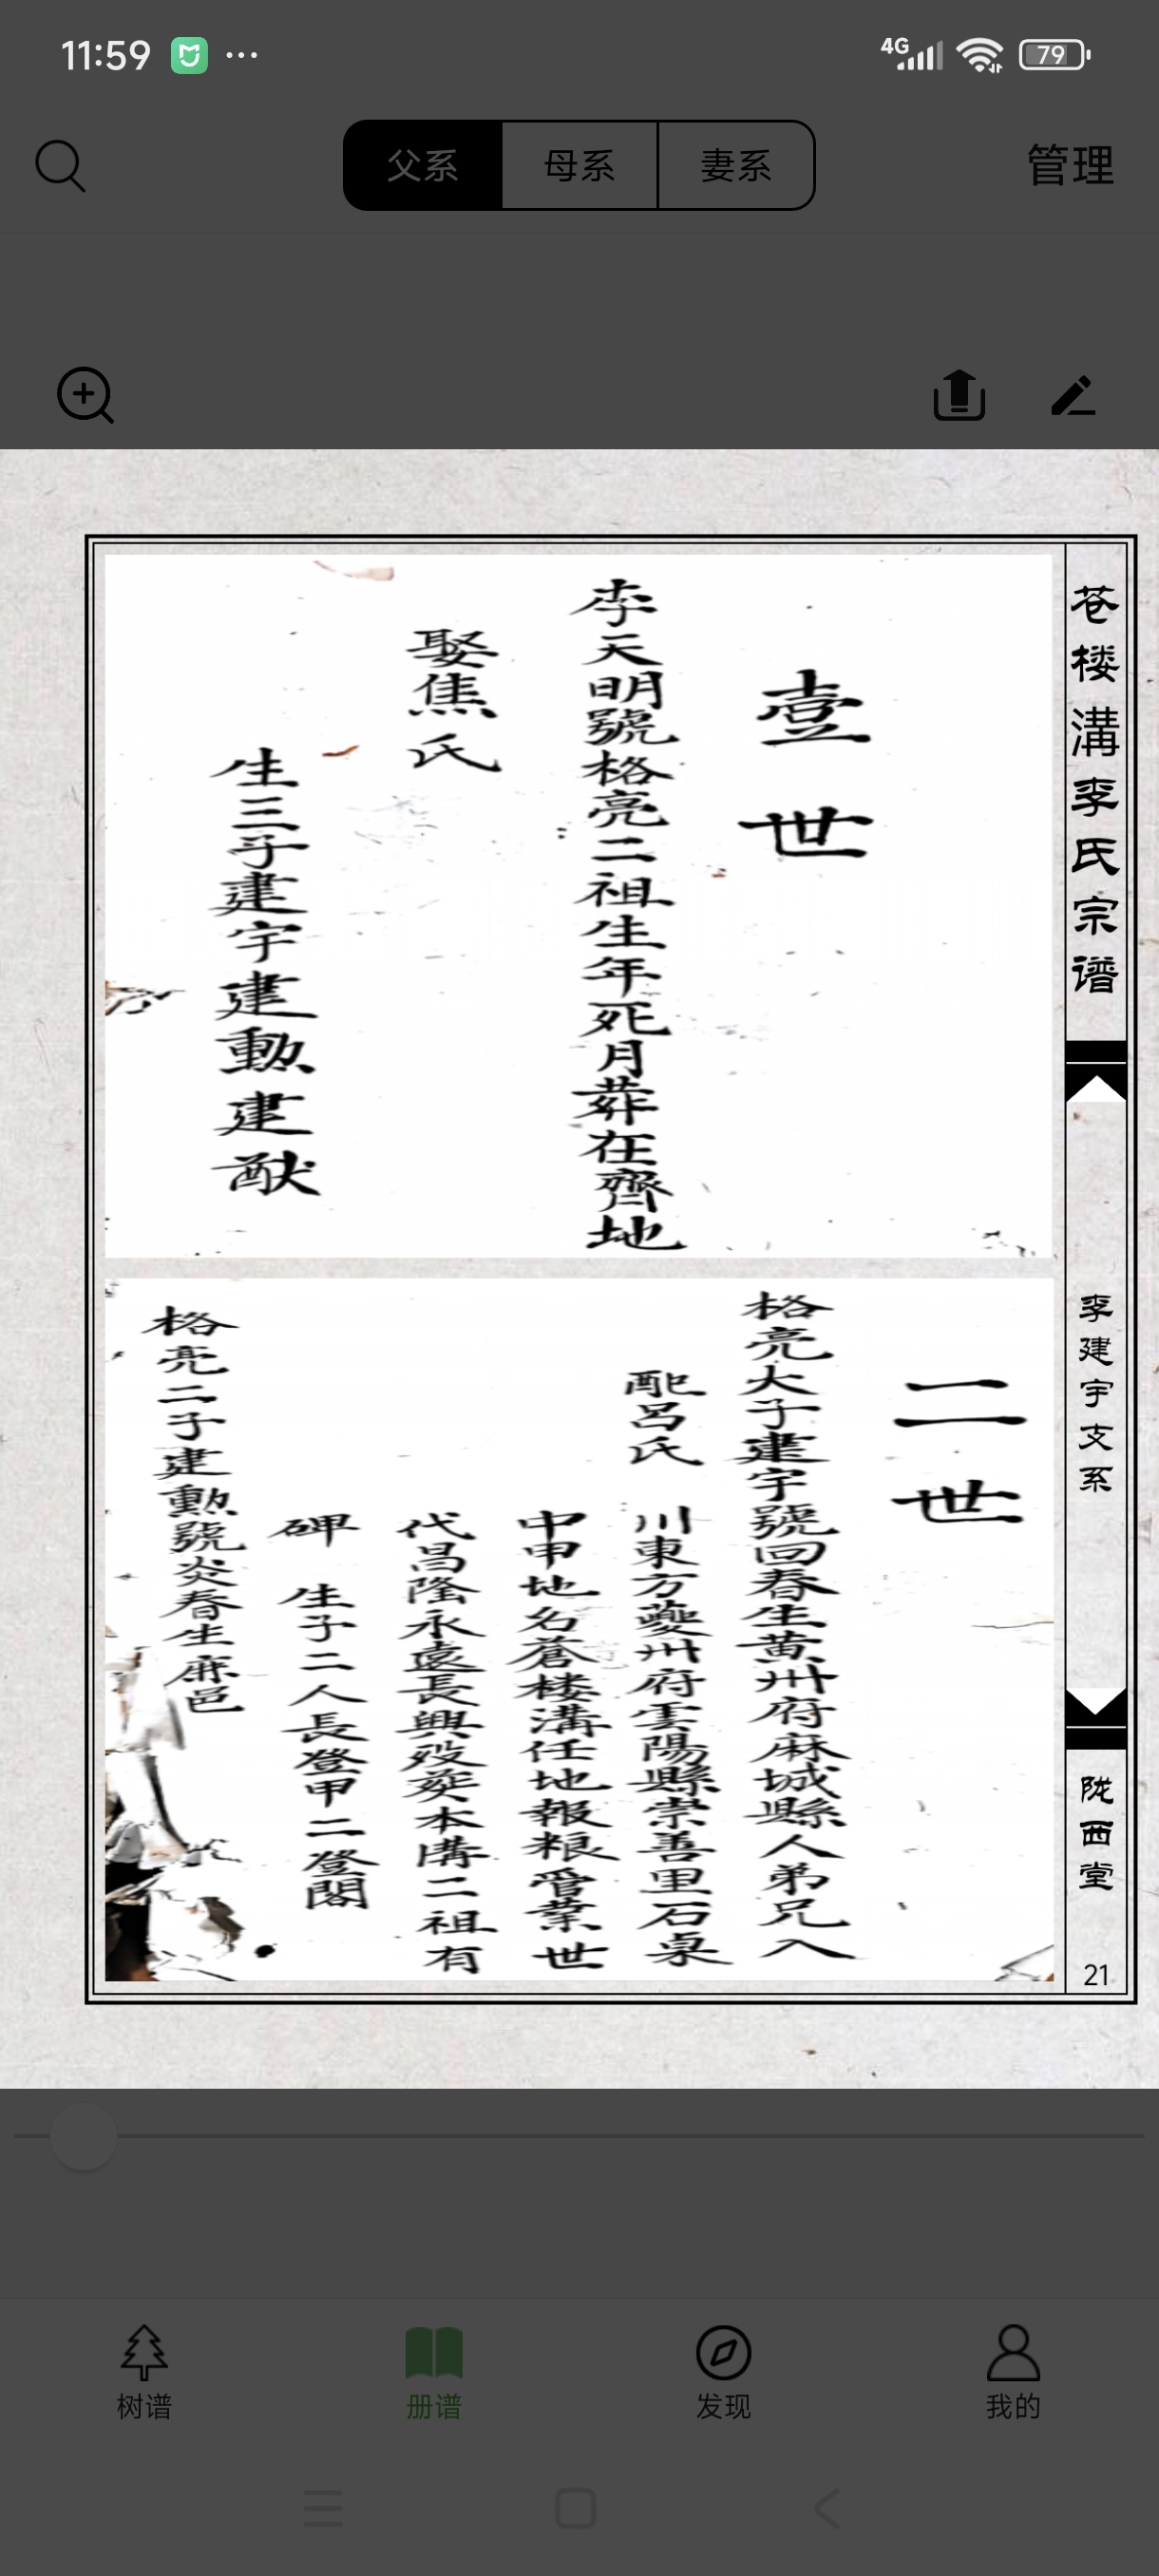 11:59
4G
79
父系
母系
妻系
管理
苍楼溝李氏宗谱
李建宇支系
陇西堂
21
壹世
李天明號格亮二祖生年死月葬在齊地
娶焦氏
生三子建宇建勳建猷
二世
格亮大子建宇號回春生黄州府麻城縣人弟兄入
配呂氏
川東方夔州府雲陽縣崇善里石桌
中甲地名蒼楼溝任地報粮管業世
代昌隆永遠長興殁葬本溝二祖有
碑 生子二人長登甲二登閣
格亮二子建勳號炎春生麻邑
树谱
册谱
发现
我的